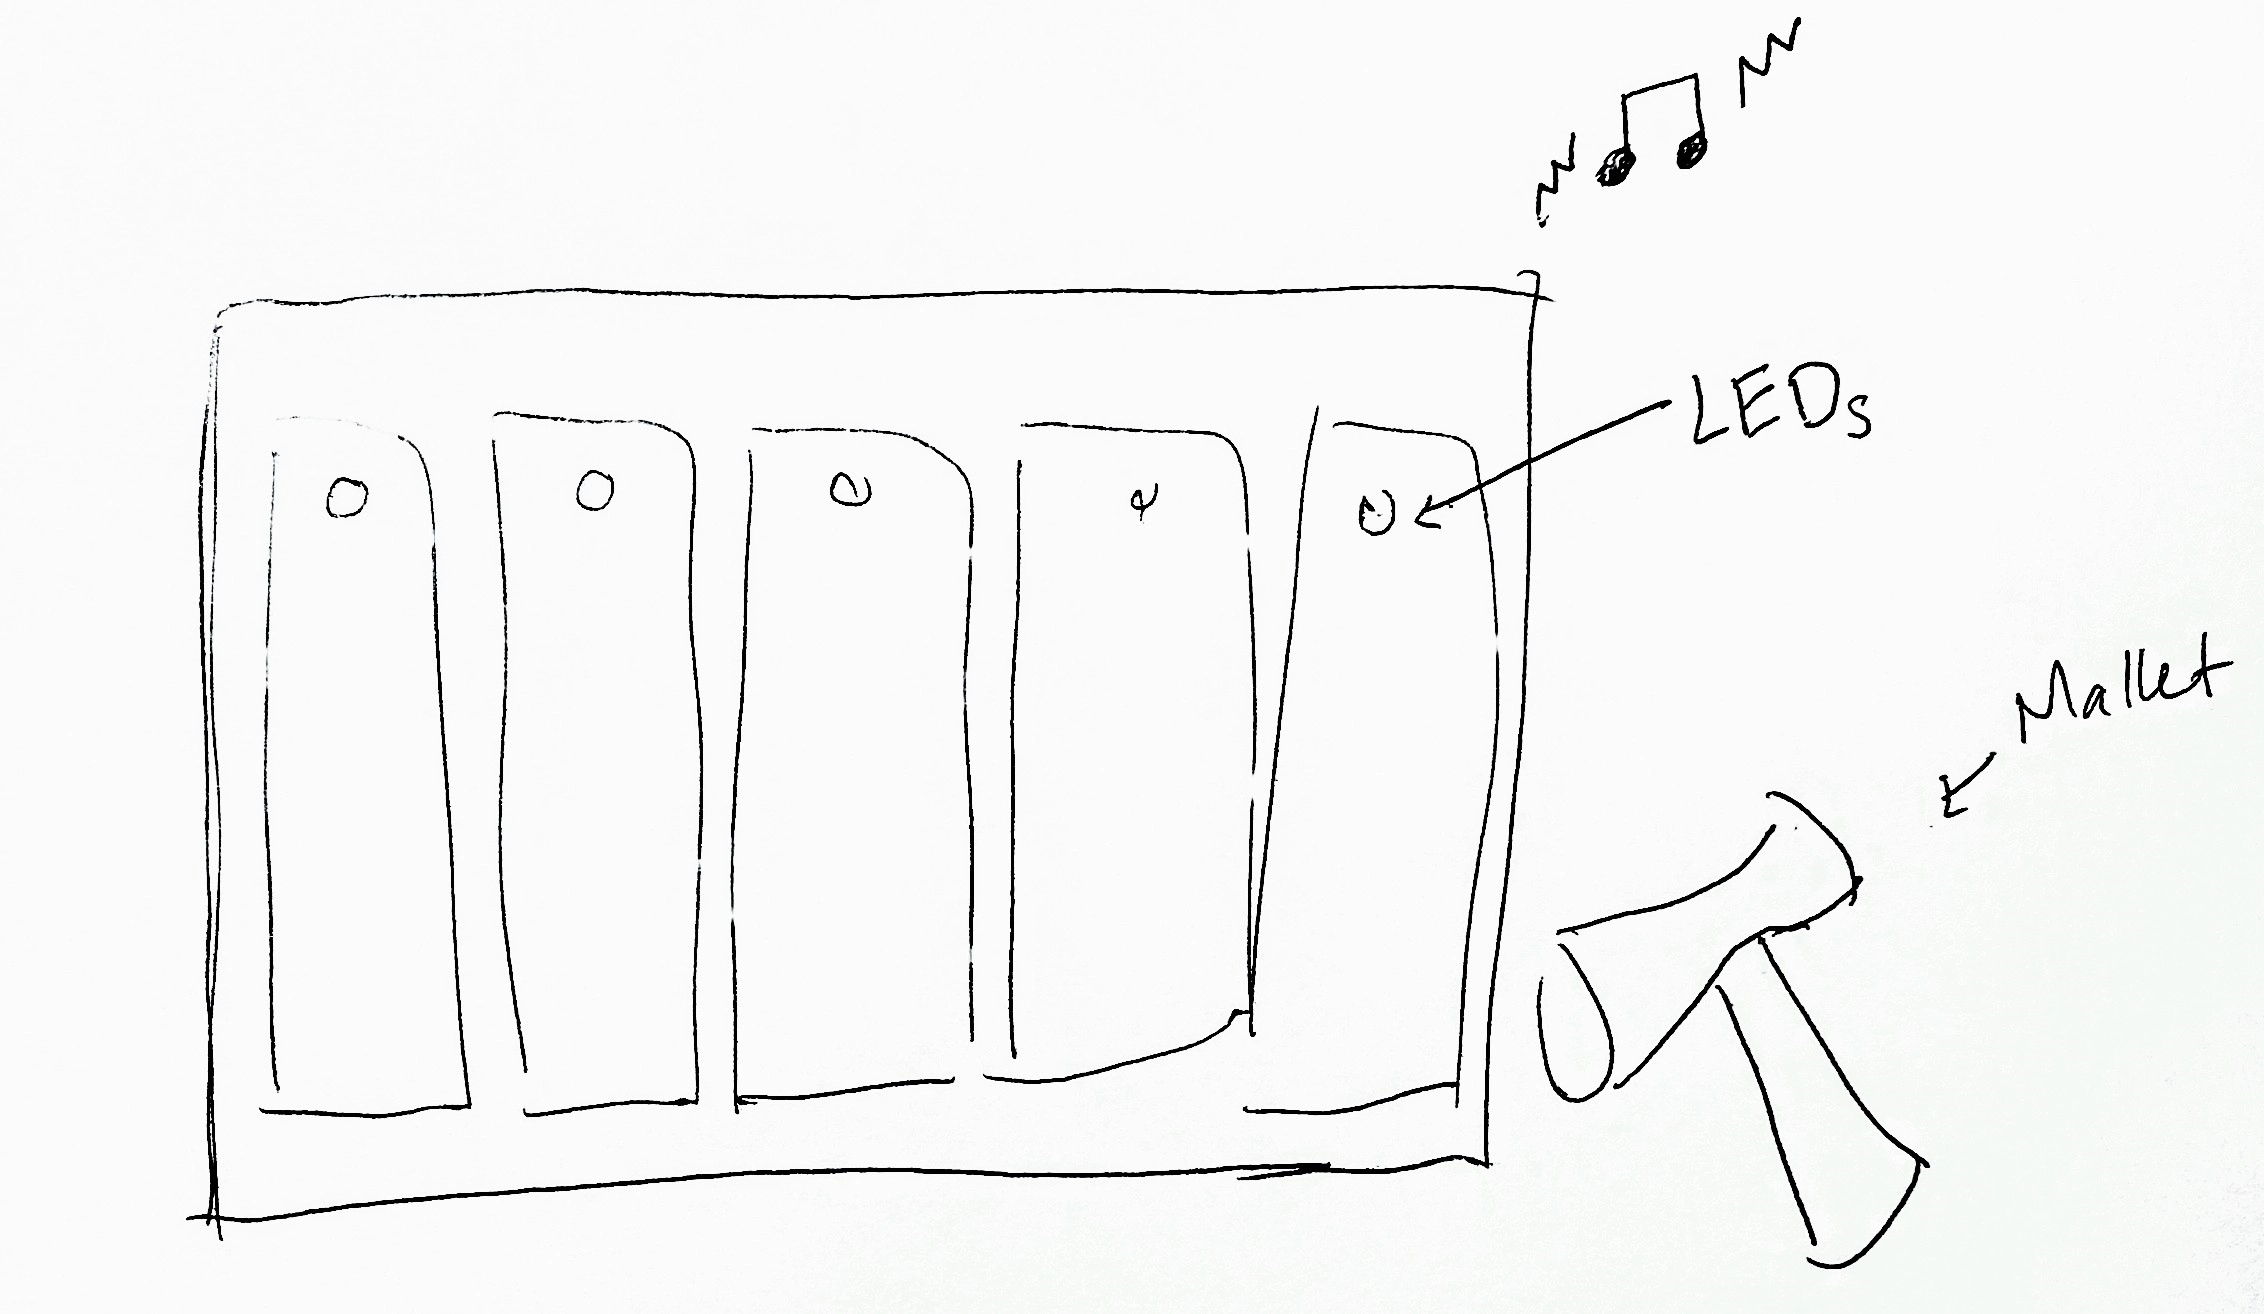 LEDs
Mallet